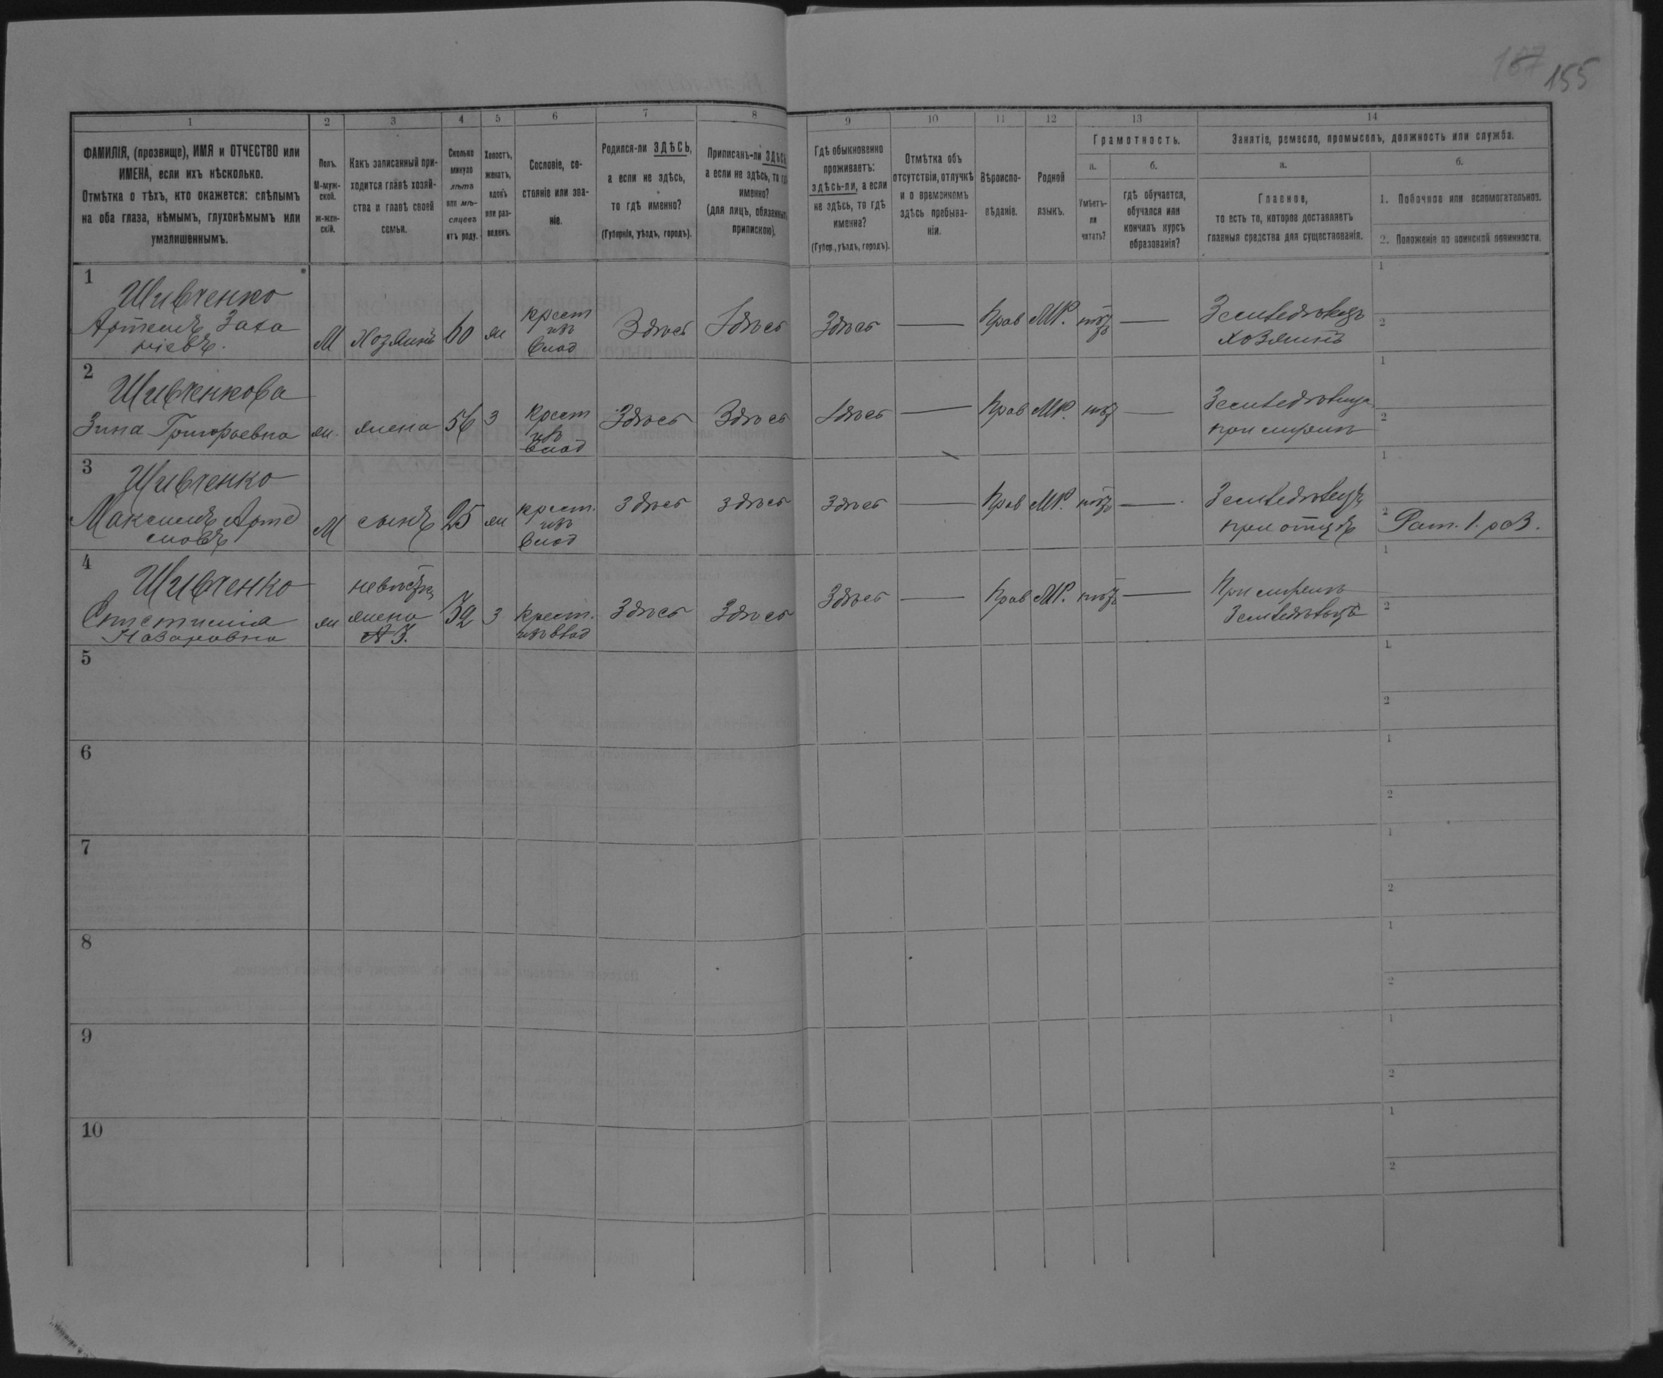 187 155
1 2 3 4 5 6 7 8 9 10 11 12 13 14
ФАМИЛІЯ, (прозвище), ИМЯ и ОТЧЕСТВО или
ИМЕНА, если ихъ нѣсколько.
Отмѣтка о тѣхъ, кто окажется: слѣпымъ
на оба глаза, нѣмымъ, глухонѣмымъ или
умалишеннымъ.
Полъ.
М-муж-
ской.
ж-жен-
скій.
Какъ записанный при-
ходится главѣ хозяй-
ства и главѣ своей
семьи.
Сколько
минуло
лѣтъ
или мѣ-
сяцевъ
отъ роду.
Холостъ,
женатъ,
вдовъ
или раз-
веденъ.
Сословіе, со-
стояніе или зва-
ніе.
Родился-ли ЗДѢСЬ,
а если не здѣсь,
то гдѣ именно?
(Губернія, уѣздъ, городъ).
Приписанъ-ли ЗДѢСЬ
а если не здѣсь, то гдѣ
именно?
(для лицъ, обязанныхъ
припискою).
Гдѣ обыкновенно
проживаетъ:
здѣсь-ли, а если
не здѣсь, то гдѣ
именно?
(Губер., уѣздъ, городъ).
Отмѣтка объ
отсутствіи, отлучкѣ
и о временномъ
здѣсь пребыва-
ніи.
Вѣроиспо-
вѣданіе.
Родной
языкъ.
Грамотность.
а.
Умѣетъ-
ли
читать?
б.
гдѣ обучается,
обучался или
кончилъ курсъ
образованія?
Занятіе, ремесло, промыселъ, должность или служба.
а.
Главное,
то есть то, которое доставляетъ
главныя средства для существованія.
б.
1. Побочное или вспомогательное.
2. Положеніе по воинской повинности.
1
Шивченко
Артемъ Заха
ріевъ.
М Хозяинъ 60 ж
крест
изъ
влад
Здѣсь Здѣсь Здѣсь — Прав МР. нѣтъ —
Земледѣлецъ
хозяинъ
1
2
2
Шивченкова
Зина Григорьевна
ж. жена 56 з
крест
изъ
влад
Здѣсь Здѣсь Здѣсь — Прав МР. нѣт —
Земледѣлица
при мужѣ
1
2
3
Шивченко
Максимъ Арте
мовъ
М сынъ 25 ж
крест.
изъ
влад
здѣсь здѣсь здѣсь — Прав МР. нѣтъ —
Земледѣлецъ
при отцѣ
1
2 Рат. 1. раз.
4
Шивченко
Назаровна
ж
невѣстка
жена
№ 3.
з
крест.
изъ влад
Здѣсь Здѣсь Здѣсь — Прав МР. нѣтъ —
При мужѣ
1
2
5
1
2
6
1
2
7
1
2
8
1
2
9
1
2
10
1
2